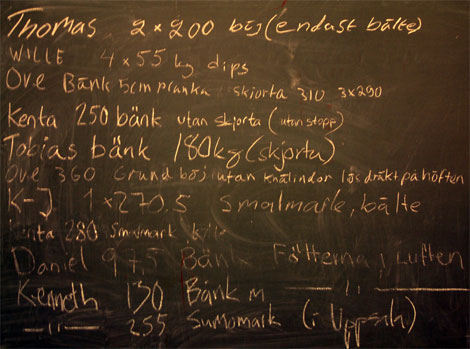 Thomas 2×200 böj (endast bälte)
WILLE 4×55 kg dips
Ove Bänk 5cm planka skjorta 310 3×290
Kenta 250 bänk utan skjorta (utan stopp)
Tobias bänk 180kg (skjorta)
Ove 360 Grundböj utan knälindor lös dräkt på höften
K-J 1×270.5 Smalmark, bälte
Kenta 280 smalmark
Daniel 97,5 Bänk Fötterna i luften
Kenneth 130 Bänk m —11—
—11— 255 Sumomark (i Uppsala)